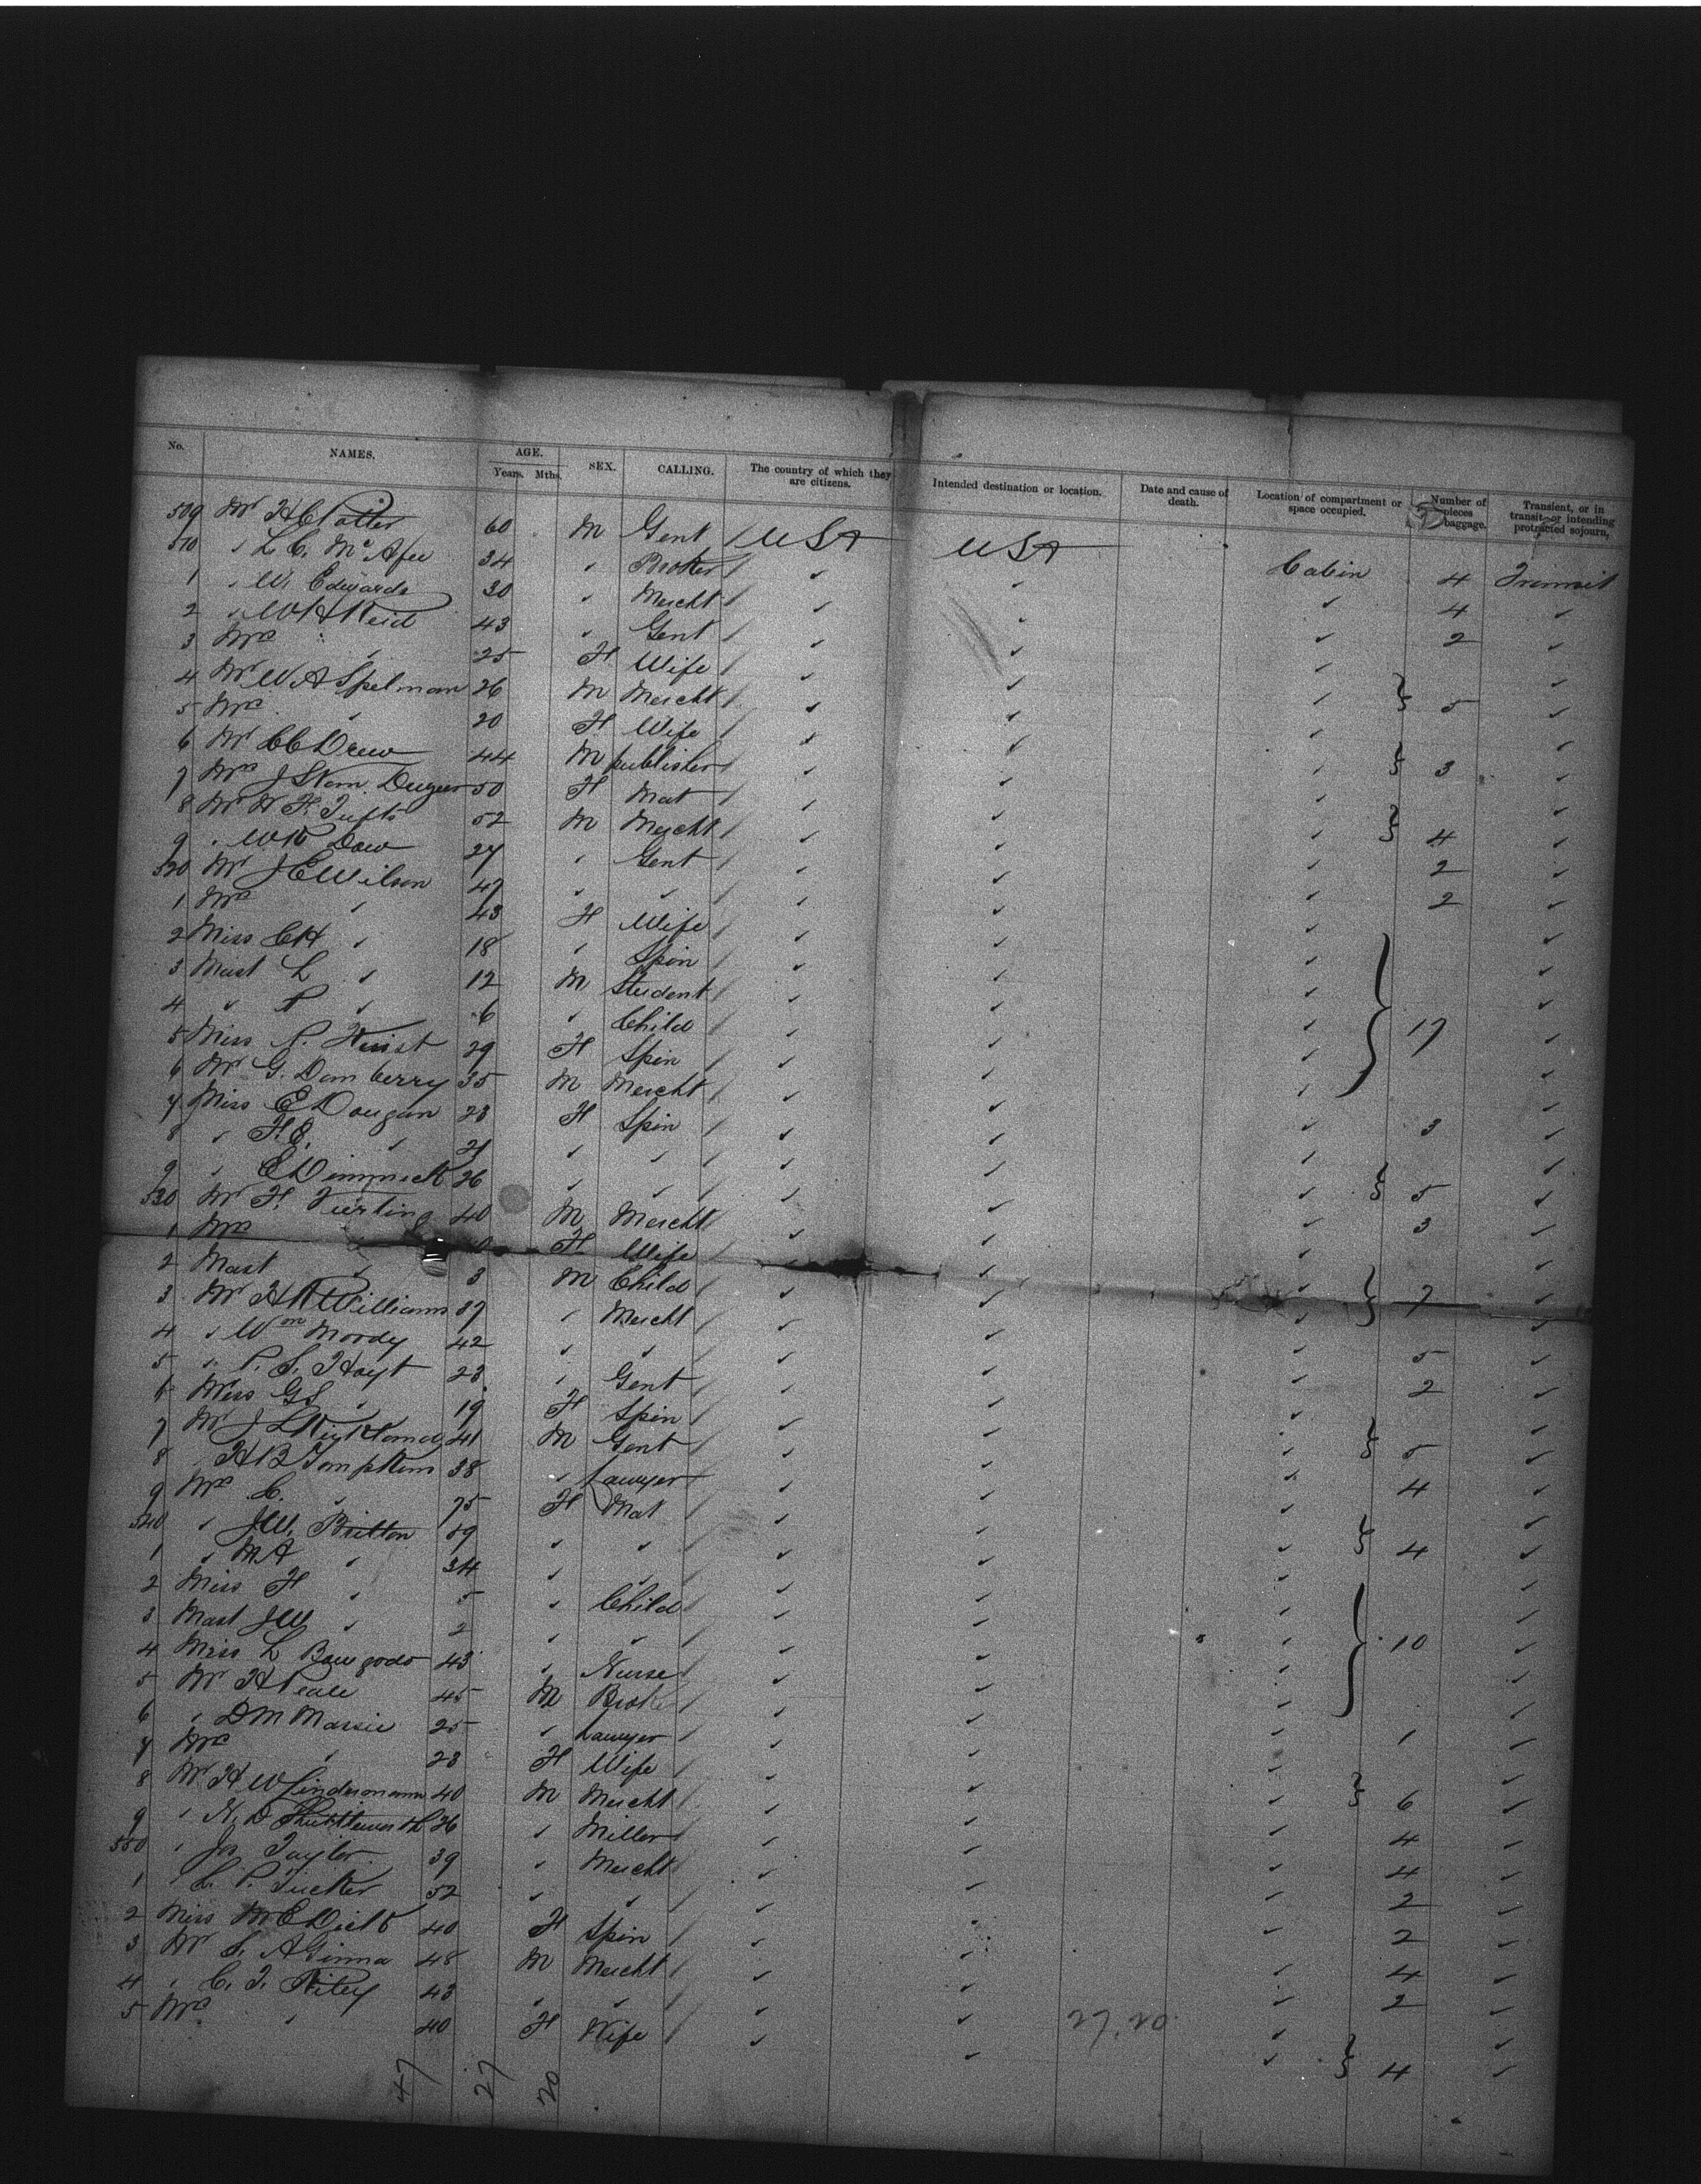 No. NAMES. AGE. Years. Mths. SEX. CALLING. The country of which they are citizens. Intended destination or location. Date and cause of death. Location of compartment or space occupied. Number of pieces baggage. Transient, or in transit or intending protracted sojourn,
509 Mr H C Potter 60 M Gent USA USA Cabin 4 Transit
510 " L. C. McAfee 34 " Broker 4
1 " W. Edwards 30 " Mercht 2
2 " W H Reid 43 " Gent
3 Mrs " 25 F Wife } 5
4 Mr W A Spelman 26 M Mercht
5 Mrs " 20 F Wife } 3
6 Mr C C Drew 44 M publisher
7 Mrs J S 50 F Mat } 4
8 Mr W F. Tufts 52 M Mercht 2
9 " W R Dow 27 " Gent 2
520 Mr J C Wilson 47 " "
1 Mrs " 43 F Wife
2 Miss C H " 18 " Spin
3 Mast L " 12 M Student } 17
4 " R " 6 " Child
5 Miss P. 29 F Spin
6 Mr G. Dam berry 35 M Mercht 3
7 Miss E Dougan 28 F Spin
8 " F. E. " 21 " " } 5
9 " E Dimmick 26 " " 3
530 Mr F. 40 M Mercht
1 Mrs " F Wife } 7
2 Mast " 3 M Child
3 Mr H R Williams 37 " Mercht 5
4 " Wm Moody 42 " " 2
5 " P. S. Hoyt 23 " Gent
6 Miss G S " 19 F Spin } 5
7 Mr J L 41 M Gent 4
8 " H B Tompkins 38 " Lawyer
9 Mrs C. " 75 F Mat } 4
540 " J. W. Britton 59 " "
1 " M A " 34 " "
2 Miss F " 5 " Child
3 Mast J W " 2 " " } 10
4 Miss L 43 " Nurse
5 Mr H Peale 45 M Brok 1
6 " D M Massie 25 " Lawyer
7 Mrs " 23 F Wife } 6
8 Mr H W Lindermann 40 M Mercht 4
9 " N. D Shuttleworth 26 " Miller 4
550 " Jos Taylor 39 " Mercht 2
1 " L. P. Tucker 52 " " 2
2 Miss M E 40 F Spin 4
3 Mr S. A Ginna 48 M Mercht 2
4 " C. T. Riley 43 " "
5 Mrs " 40 F Wife } 4
27.20
47 27 20